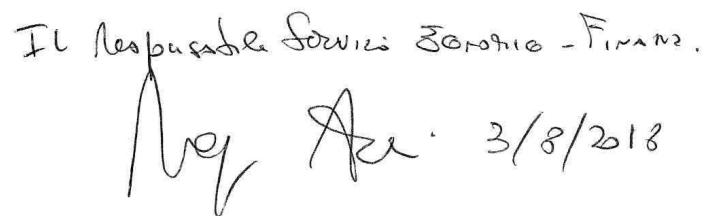 Il Responsabile Servizi Economico - Finanz.
3/8/2018